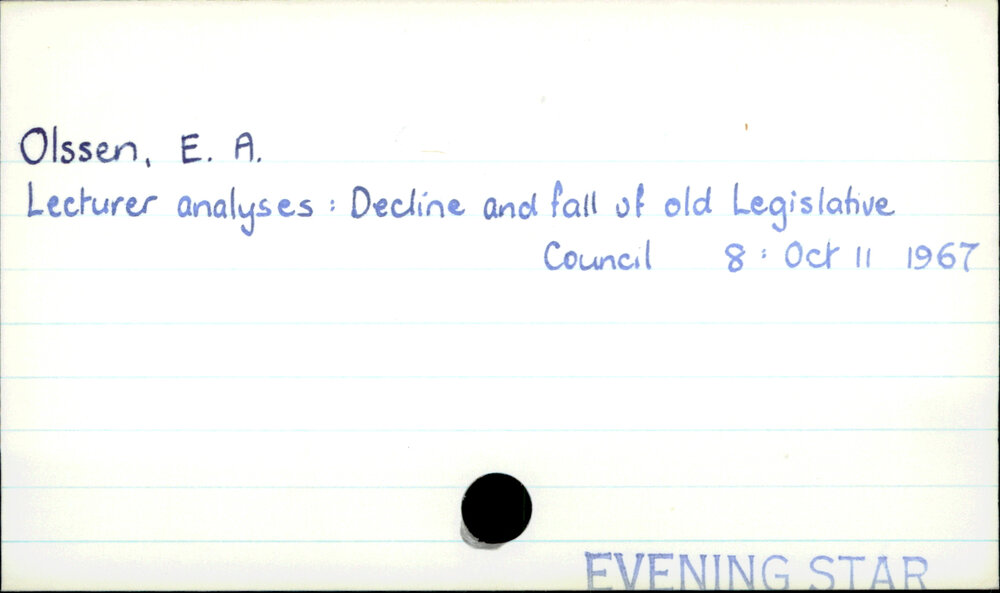 Olssen, E. A.
Lecturer analyses : Decline and fall of old Legislative
Council 8 : Oct 11 1967
EVENING STAR